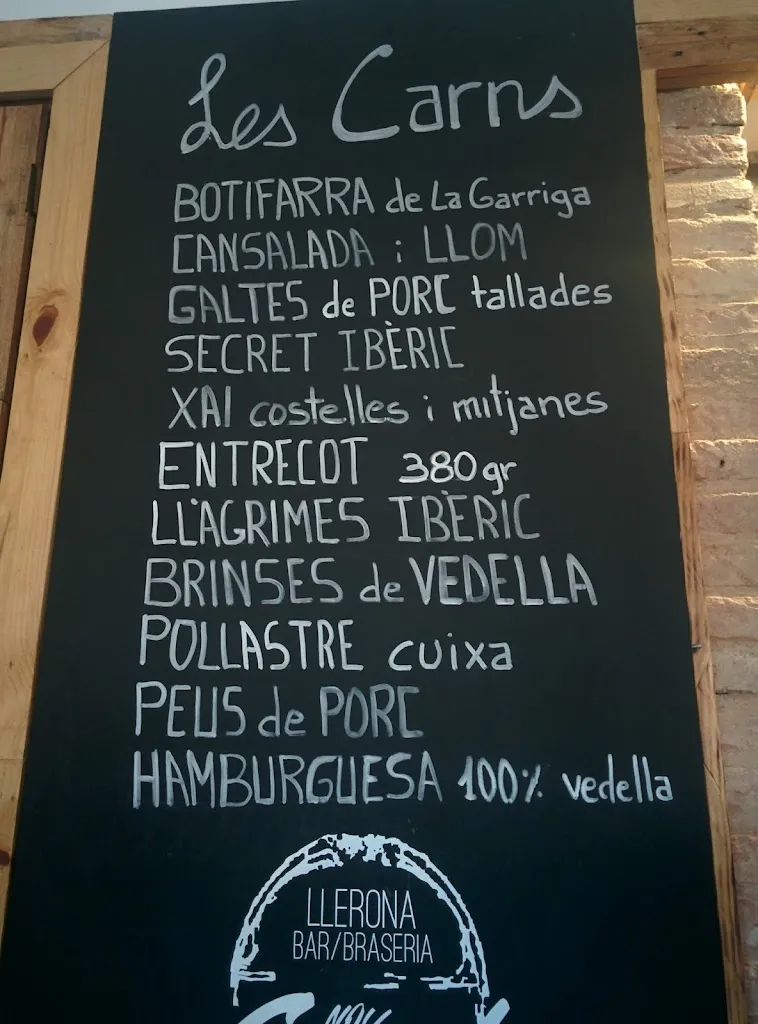 Les Carns
BOTIFARRA de La Garriga
CANSALADA i LLOM
GALTES de PORC tallades
SECRET IBÈRIC
XAI costelles i mitjanes
ENTRECOT 380gr
LLÀGRIMES IBÈRIC
BRINSES de VEDELLA
POLLASTRE cuixa
PEUS de PORC
HAMBURGUESA 100% vedella
LLERONA
BAR/BRASERIA